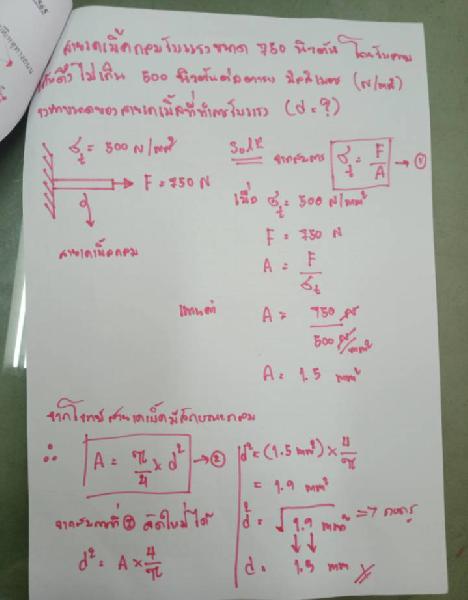 สายเคเบิ้ลกลมรับแรงขนาด 750 นิวตัน โดยรับความ
เค้นดึงไม่เกิน 500 นิวตันต่อตาราง มิลลิเมตร (N/mm²)
จงหาขนาดของสายเคเบิ้ลที่ทำการรับแรง (d = ?)
σt = 500 N/mm²
F = 750 N
d
สายเคเบิ้ลกลม
Solⁿ
จากสมการ σt = F/A → ①
เมื่อ σt = 500 N/mm²
F = 750 N
A = F/σt
แทนค่า A = 750 N / 500 N/mm²
A = 1.5 mm²
จากโจทย์สายเคเบิ้ลมีลักษณะกลม
∴ A = π/4 × d² → ②
จากสมการที่ ② จัดใหม่ได้
d² = A × 4/π
d² = (1.5 mm²) × 4/π
= 1.9 mm²
d = √1.9 mm²
d = 1.3 mm